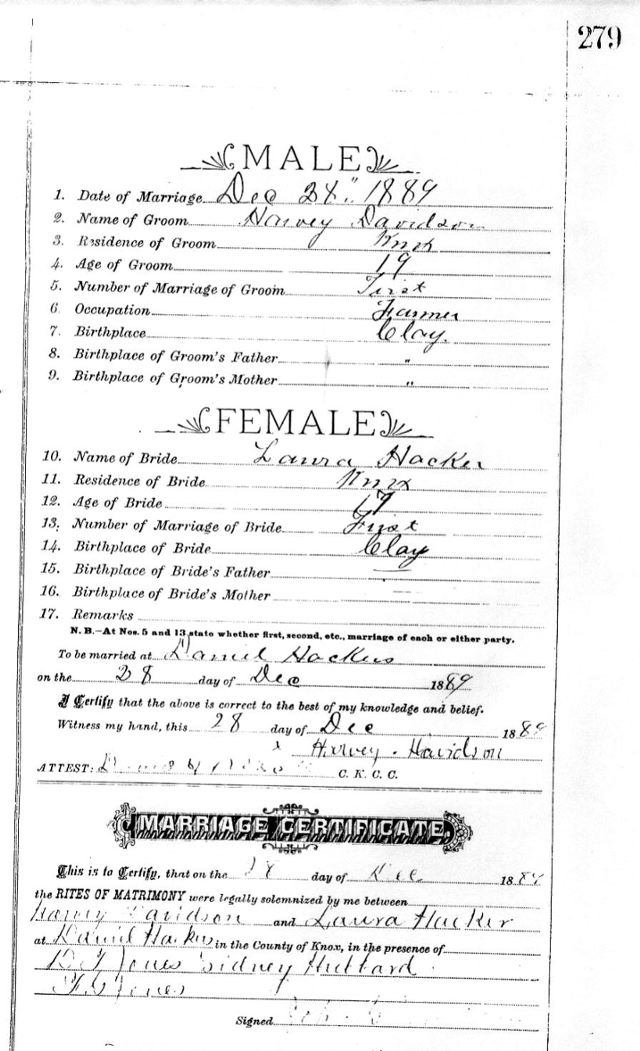 279
MALE
1. Date of Marriage Dec 28" 1889
2. Name of Groom Harvey Davidson
3. Residence of Groom Knox
4. Age of Groom 19
5. Number of Marriage of Groom First
6. Occupation Farmer
7. Birthplace Clay.
8. Birthplace of Groom's Father "
9. Birthplace of Groom's Mother "
FEMALE
10. Name of Bride Laura Hacker
11. Residence of Bride Knox
12. Age of Bride 17
13. Number of Marriage of Bride First
14. Birthplace of Bride Clay
15. Birthplace of Bride's Father
16. Birthplace of Bride's Mother
17. Remarks
N. B.—At Nos. 5 and 13 state whether first, second, etc., marriage of each or either party.
To be married at Daniel Hackers
on the 28 day of Dec 1889
I Certify that the above is correct to the best of my knowledge and belief.
Witness my hand, this 28 day of Dec 1889
x Harvey Davidson
ATTEST: C. K. C. C.
MARRIAGE CERTIFICATE.
This is to Certify, that on the 28 day of Dec 1889
the RITES OF MATRIMONY were legally solemnized by me between
Harvey Davidson and Laura Hacker
at Daniel Hackers in the County of Knox, in the presence of
Jones Sidney Hubbard
Jones
Signed